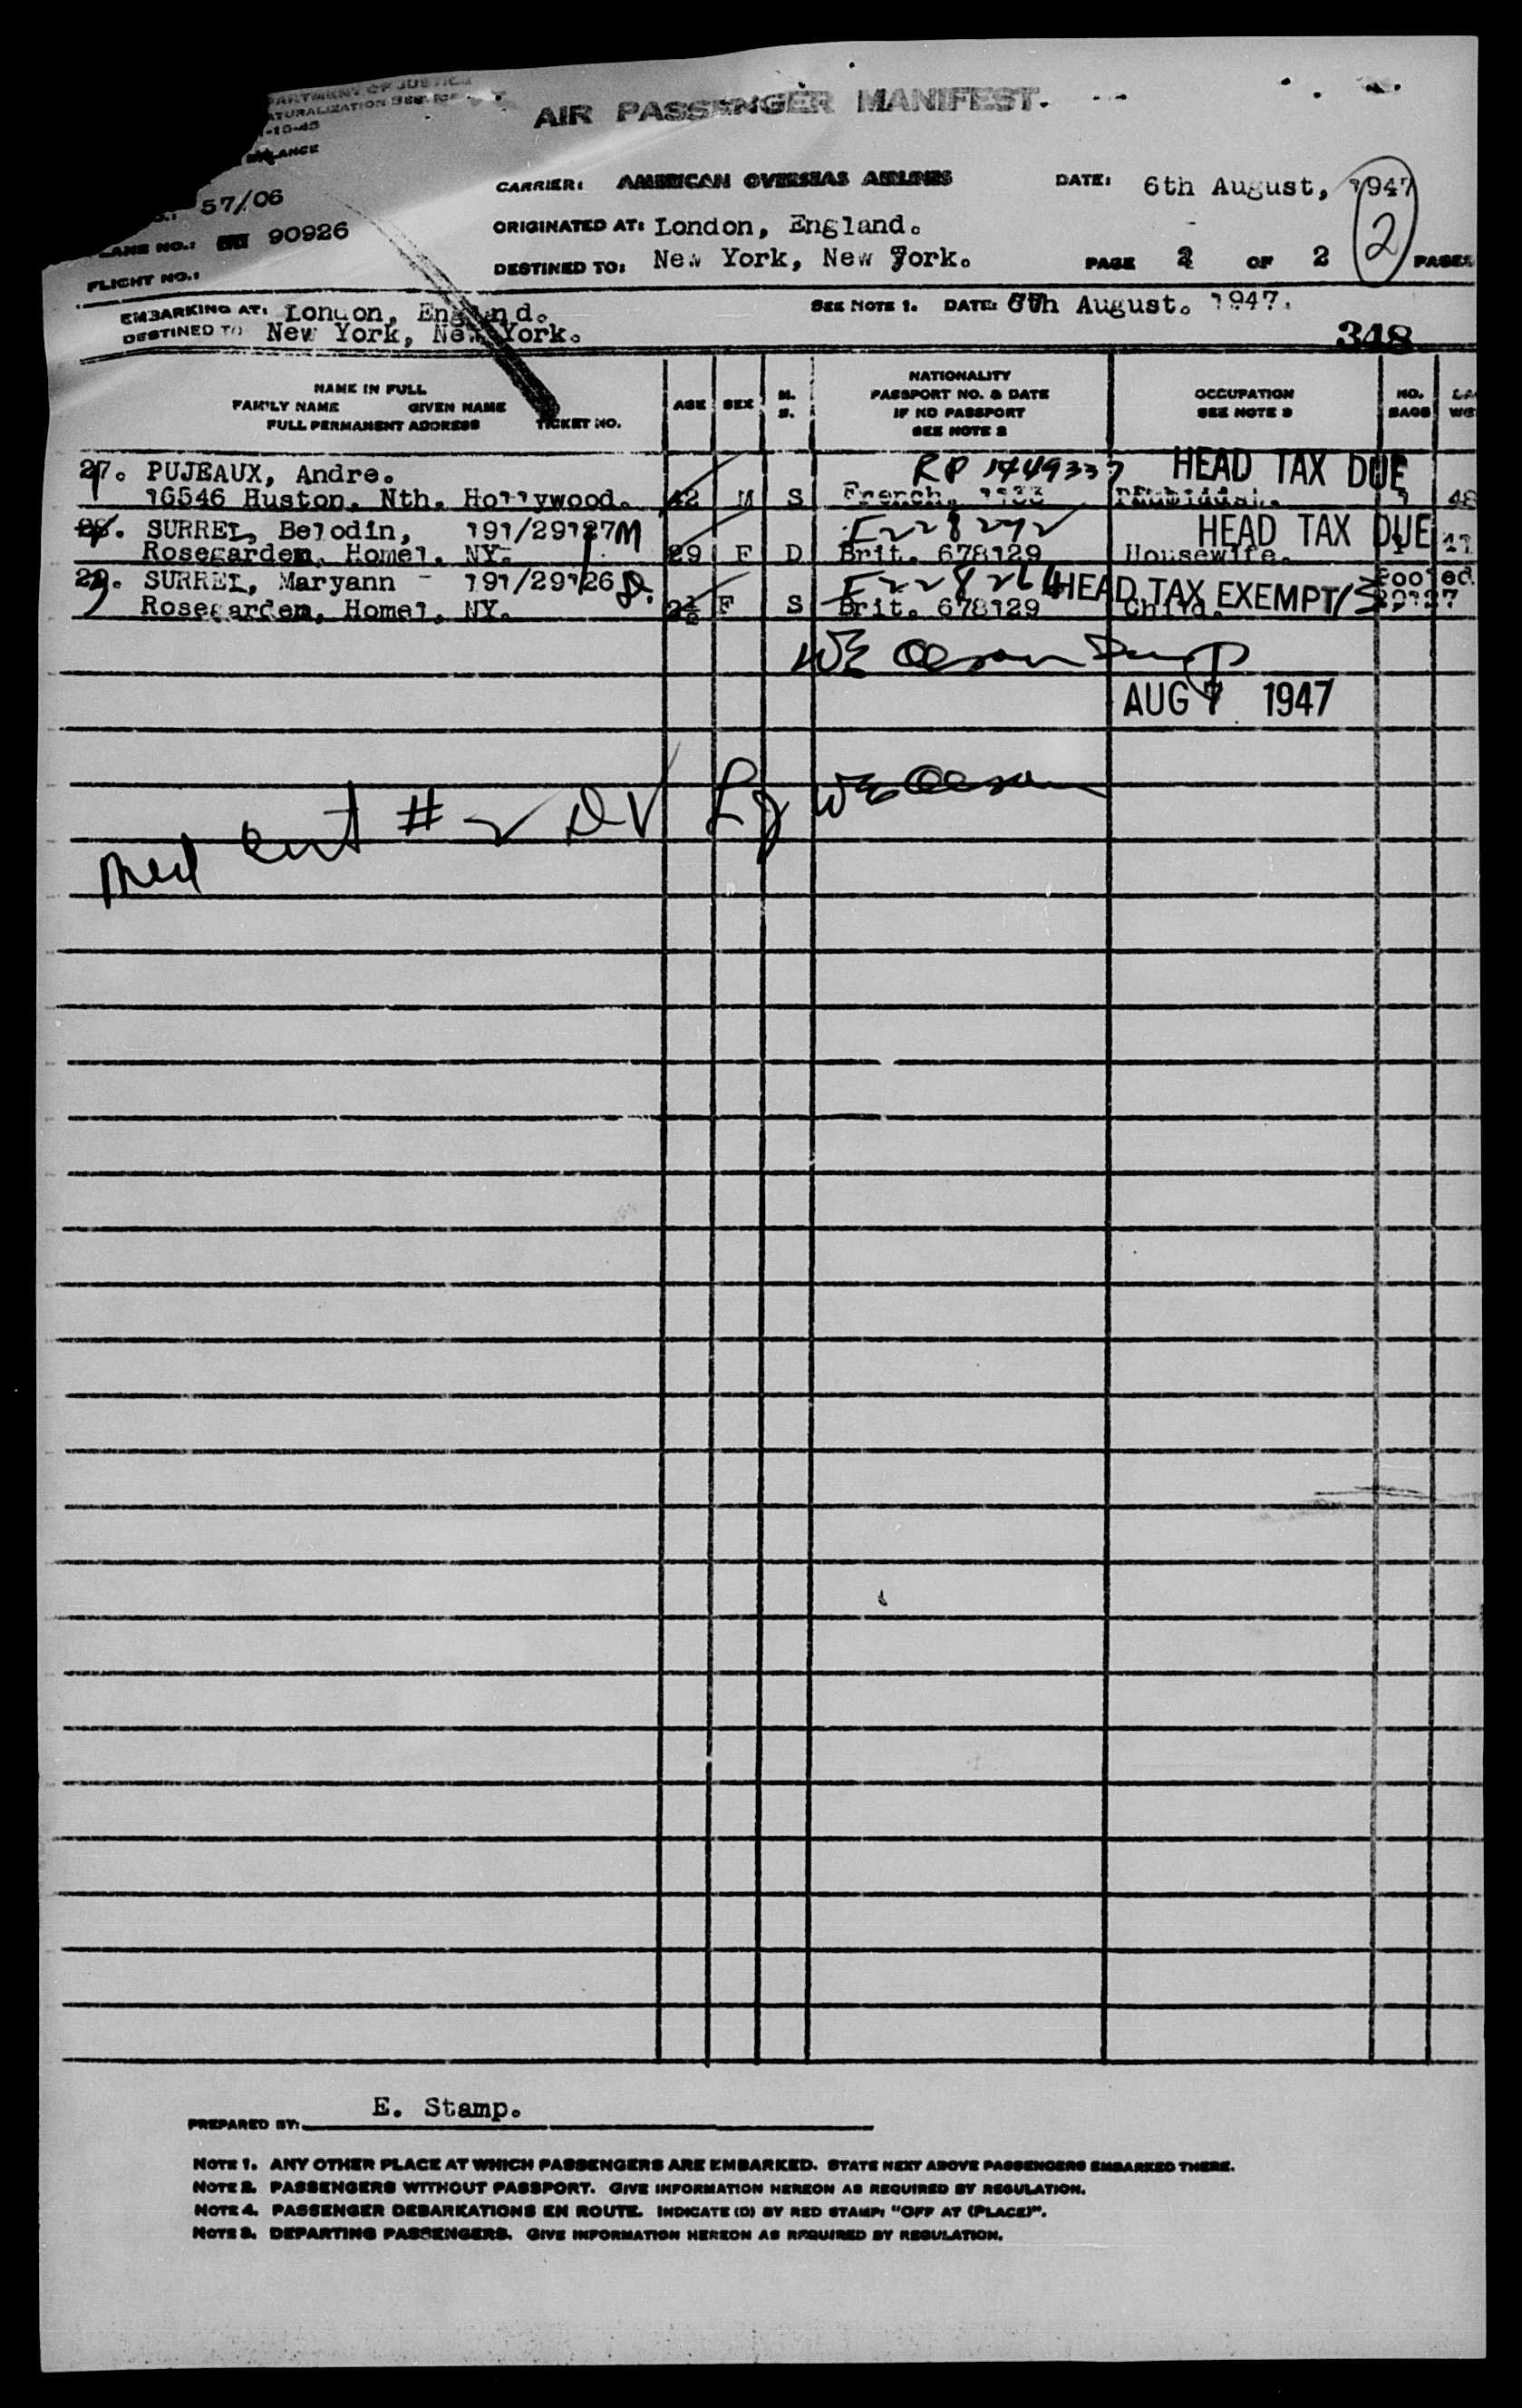 PARTMENT OF JUSTICE
ATURALIZATION
-10-45
AIR PASSENGER MANIFEST.
CARRIER: AMERICAN OVERSEAS AIRLINES DATE: 6th August, 1947
57/06
ORIGINATED AT: London, England.
LANE NO.: 90926
DESTINED TO: New York, New York. PAGE 2 OF 2 PAGES
2
FLIGHT NO.:
EMBARKING AT: London, England. SEE NOTE 1. DATE: 6th August. 1947.
DESTINED TO New York, New York.
348
NAME IN FULL
FAMILY NAME GIVEN NAME
FULL PERMANENT ADDRESS TICKET NO.
AGE SEX M. S.
NATIONALITY
PASSPORT NO. & DATE
IF NO PASSPORT
SEE NOTE 2
OCCUPATION
SEE NOTE 3
NO. BAGS
27. PUJEAUX, Andre. RP 1449337 HEAD TAX DUE
16546 Huston, Nth. Hollywood. 42 M S French. 1 48
28. SURREL, Belodin, 191/29127 M HEAD TAX DUE
Rosegarden, Homel, NY. 29 F D Brit. 678129 Housewife. 1 41
29. SURREL, Maryann - 191/29126 HEAD TAX EXEMPT Pooled
Rosegarden, Homel, NY. 2½ F S Brit. 678129 Child. 29127
AUG 7 1947
Med cert # 2
PREPARED BY: E. Stamp.
NOTE 1. ANY OTHER PLACE AT WHICH PASSENGERS ARE EMBARKED. STATE NEXT ABOVE PASSENGERS EMBARKED THERE.
NOTE 2. PASSENGERS WITHOUT PASSPORT. GIVE INFORMATION HEREON AS REQUIRED BY REGULATION.
NOTE 4. PASSENGER DEBARKATIONS EN ROUTE. INDICATE (D) BY RED STAMP: "OFF AT (PLACE)".
NOTE 3. DEPARTING PASSENGERS. GIVE INFORMATION HEREON AS REQUIRED BY REGULATION.